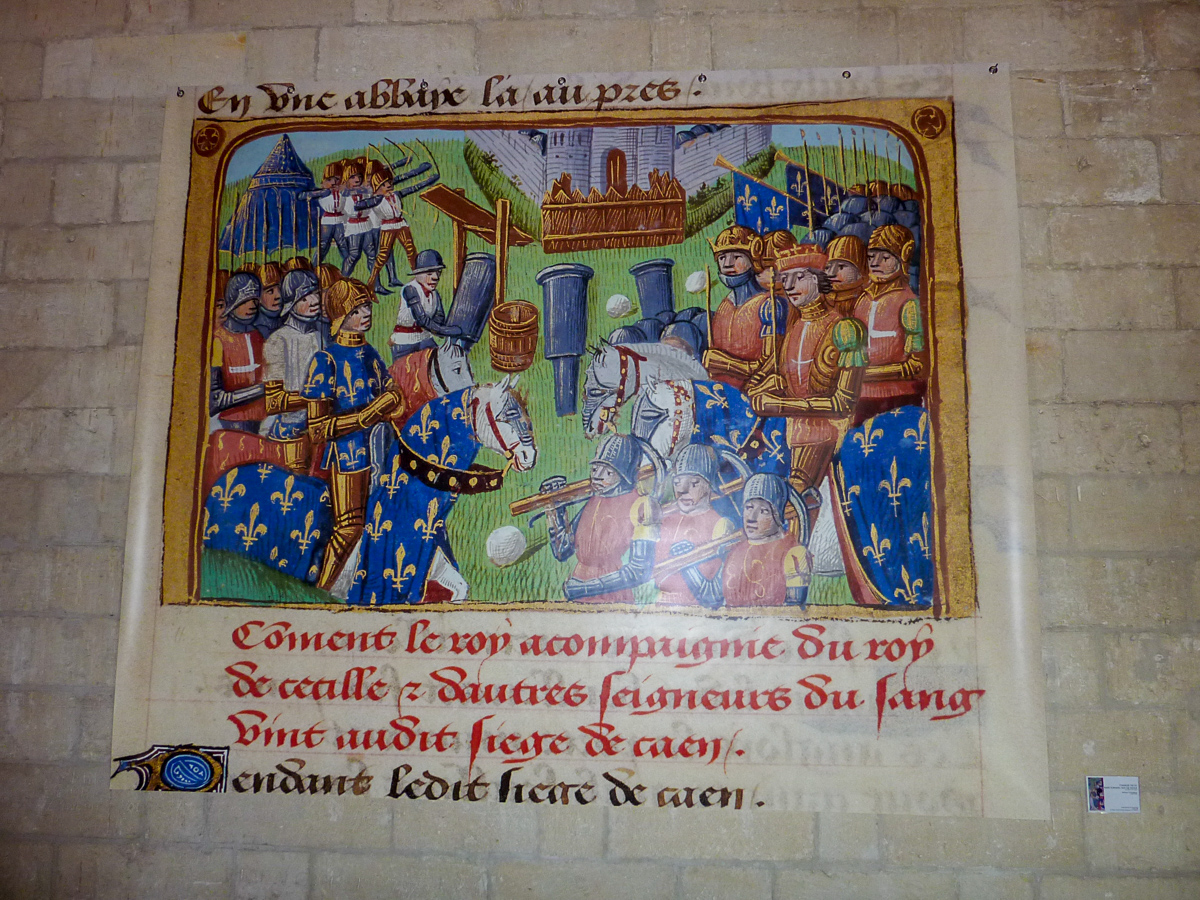 En une abbaye la / au pres /.
Co͞ment le roy acompaignie du roy
de cecille ⁊ dautres seigneurs du sang
vint audit siege de caen /.
Pendant ledit siege de caen .